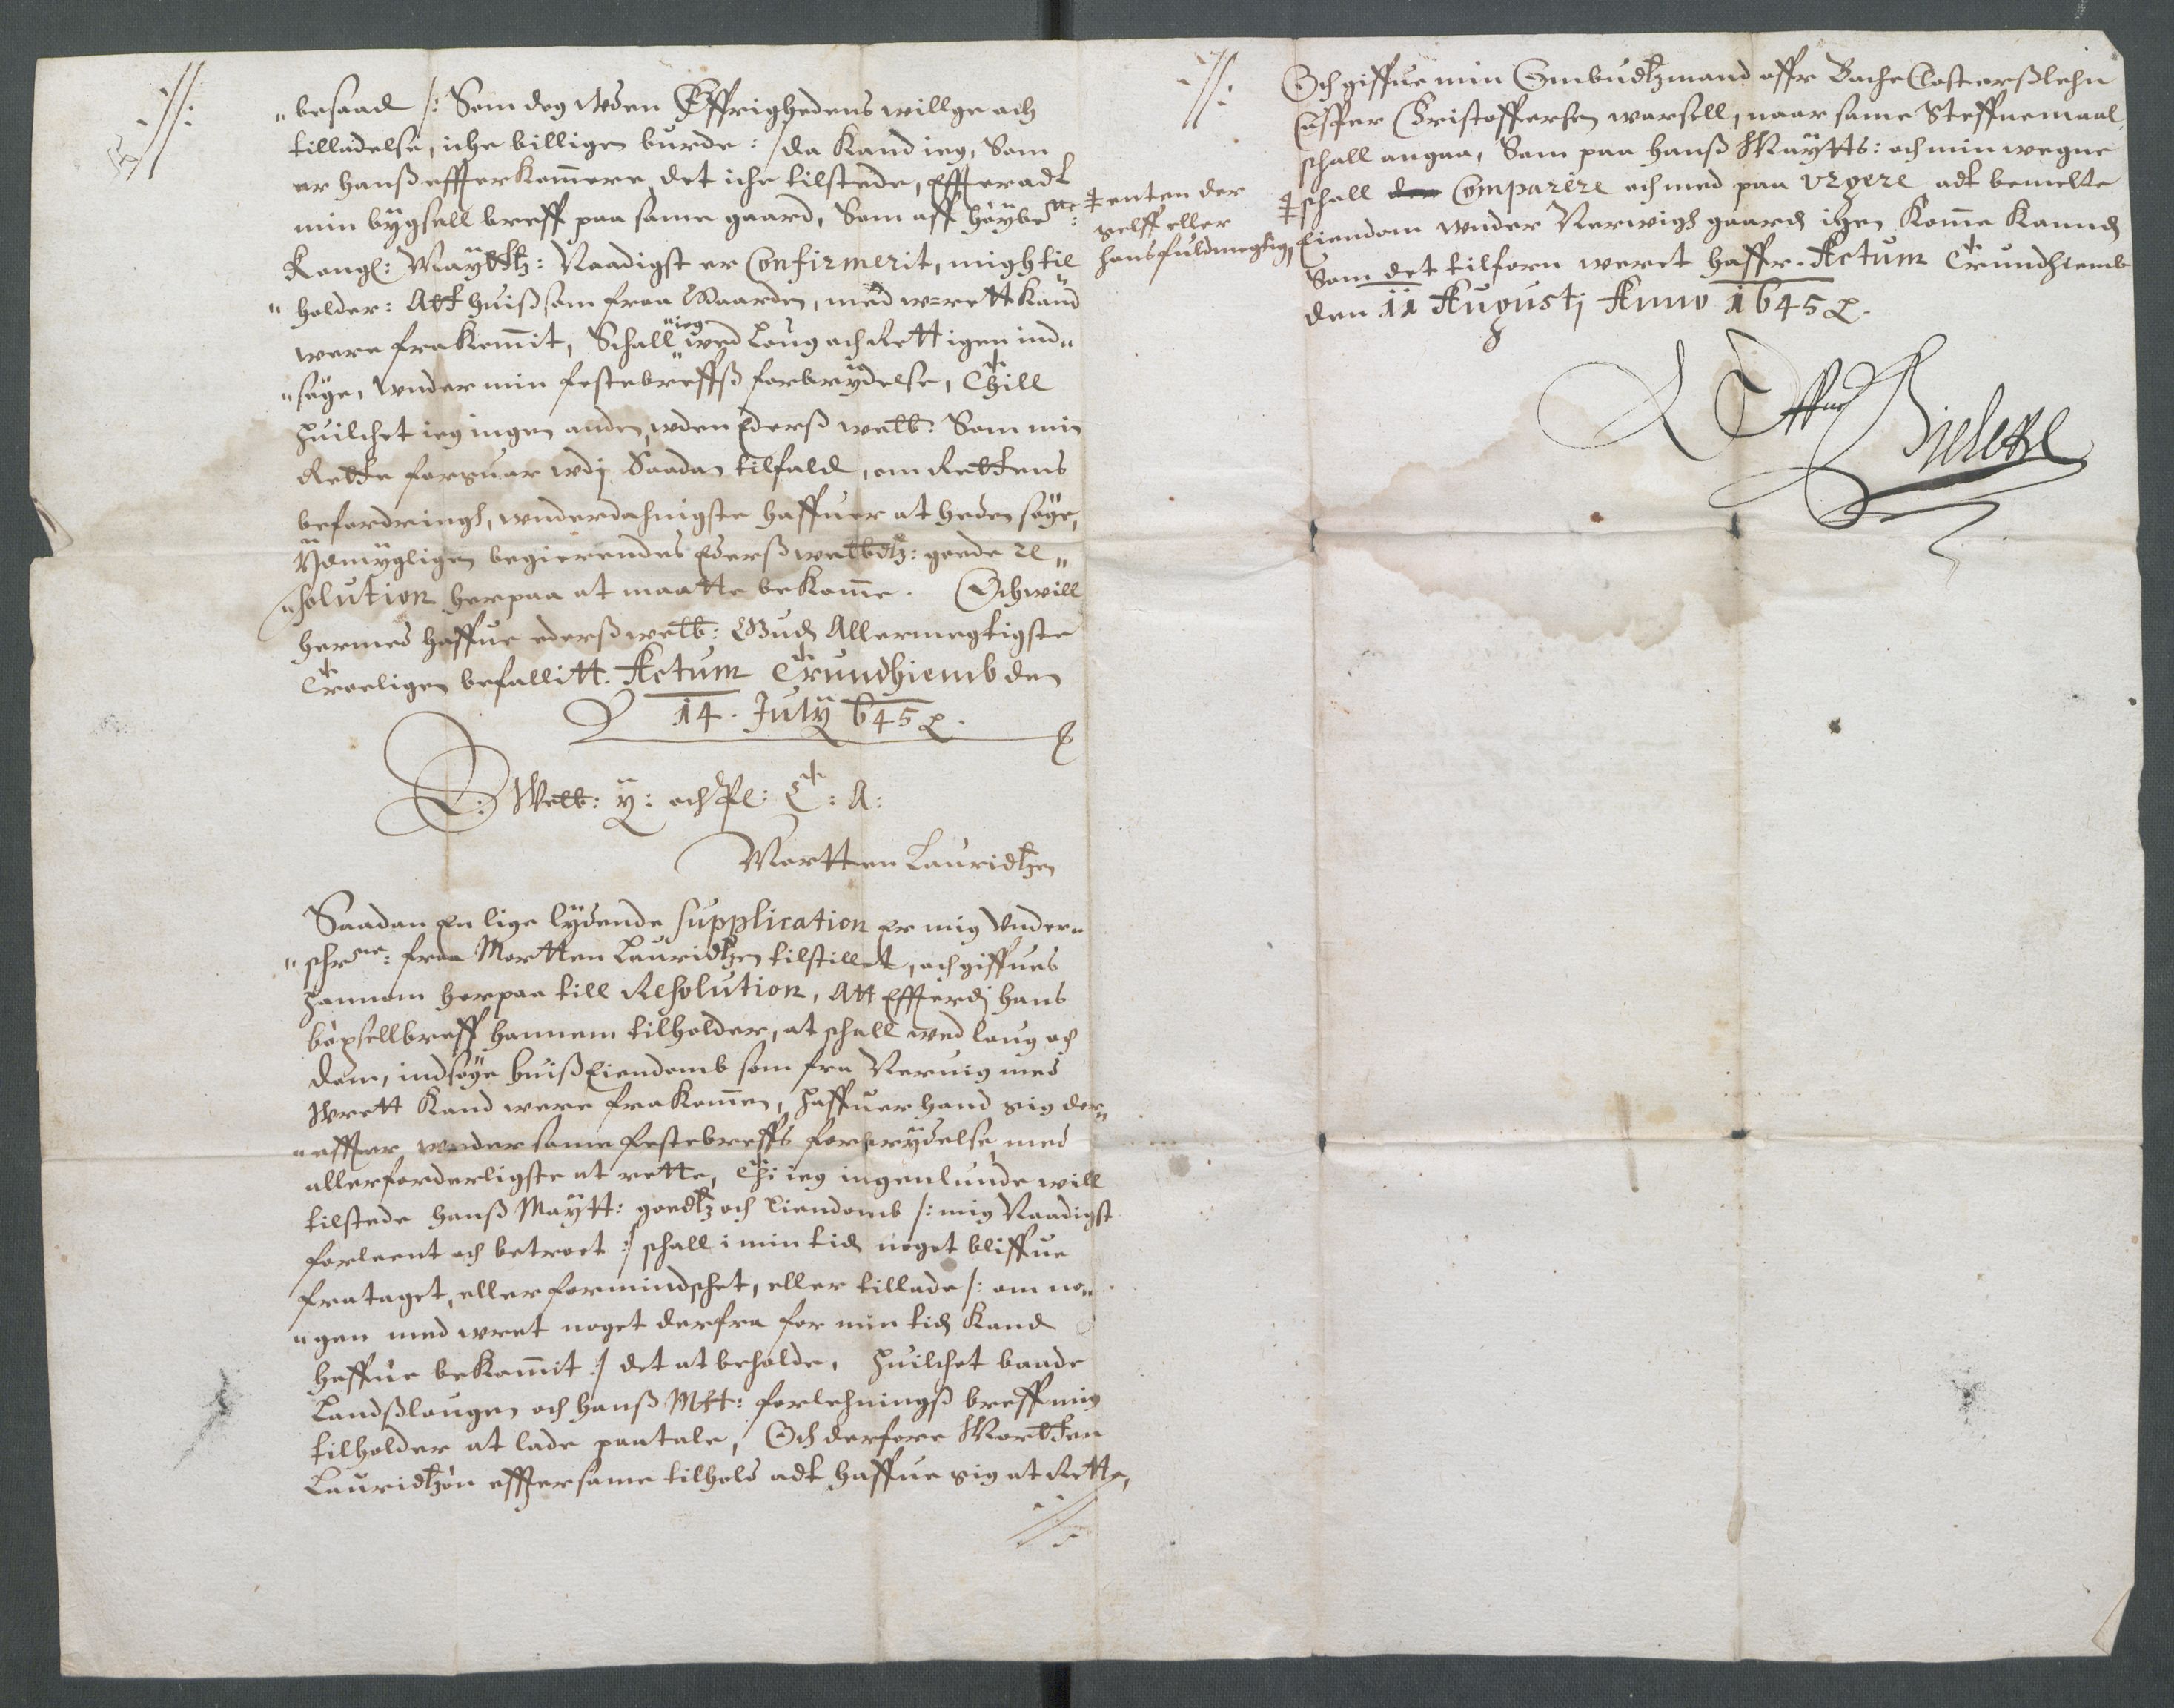 besaad /: Som dog uden Øffrighedens willge och
tilladelse, iche billigen burde :/ da kand ieg, Som
er hanß effterkommere det iche tilstede, Effteradt
min bygsell breff paa same gaard, Som aff høybe:ne
Kongl: Maÿttz: Naadigst er Confirmerit, migh til
holder: Att huiß som fraa Gaarden, med w=rett kand
were frakommit, Schall ieg wed Loug och Rett igen ind„
„søge, wnder min festebreffß forbrydelse, Thill
huilchet ieg ingen anden, uden Ederß welb: Som min
Rette forsuar udj Saadan tilfald, om Rettens
befordringh, wnderdahnigste haffuer at heden søge,
Ydmygligen begierendes Ederß welbdtz: goede re„
„solution herpaa at maatte bekomme. Och will
hermed haffue ederß welb: Gud Allermegtigste
Troeligen befallitt. Actum Trundhiemb den
14. July 645
E: Welb: y: och Pl: T: A:
Mortten Lauridtzen
Saadan En lige lydende supplication er mig Under„
„schr:ne: fraa Mortten Lauridtzen tilstillet, och giffues
hannom herpaa till Resolution, Att Effterdj hans
bøxsellbreff hannem tilholder, at schall wed loug och
dom, indsøge huiß Eiendomb som fra Reruig med
Wrett kand were frakommen, haffuer hand sig der„
„effter wnder same festebreffs forbrydelse med
allerforderligste at rette, Thi ieg ingenlunde will
tilstede hanß Maytt: goedtz och Eiendomb /: mig Naadigst
forleent och betroet :/ schall i min tid noget bliffue
frataget, eller formindschet, eller tillade /: om no„
„gen med uret noget derfra for min tid kand
haffue bekommit :/ det at beholde, huilchet baade
Landßlougen och hanß Mtt: forlehningß breff mig
tilholder at lade paatale, Och derfore Mortten
Lauridtzøn efftersame tilhold adt haffue sig at Rette,
Och giffue min Ombudtzmand offr Bache Closterßlehn
Casper Christoffersen warsell, naar same Steffnemaal
schall angaa, Som paa hanß Maytts: och min wegne
‡ enten der
selff eller
hans fuldmegtig,
‡ schall Comparere och med paa urgere adt bemelte
Eiendom wnder Nerwigh gaard igen komme kannd
Som det tilforn weret haffr. Actum Trundhiemb
den 11 Augustj Anno 1645
Oluff Bielcke